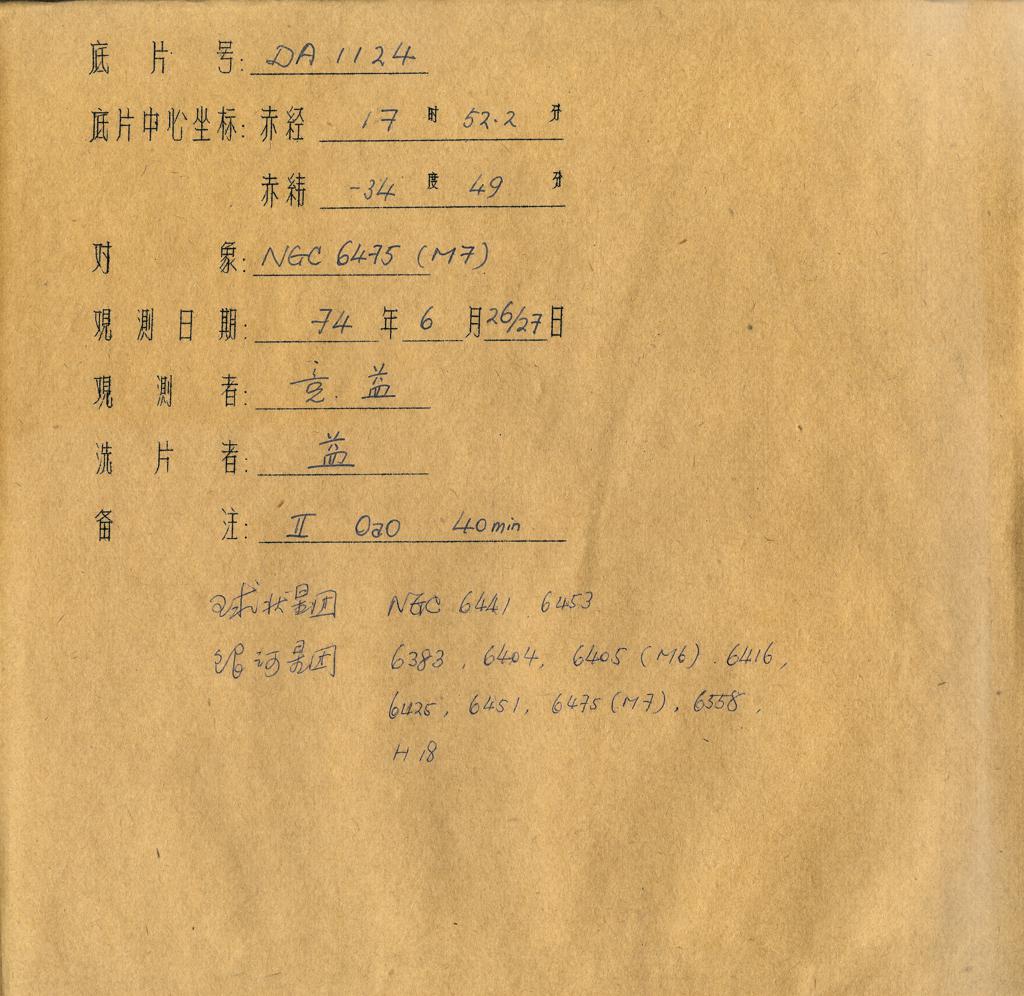 底片号: DA 1124
底片中心坐标: 赤经 17 时 52.2 分
赤纬 -34 度 49 分
对象: NGC 6475 (M7)
观测日期: 74 年 6 月 26/27 日
观测者: 竞. 益
洗片者: 益
备注: II OaO 40min
球状星团 NGC 6441 6453
银河星团 6383, 6404, 6405 (M6). 6416,
6425, 6451, 6475 (M7), 6558,
H 18